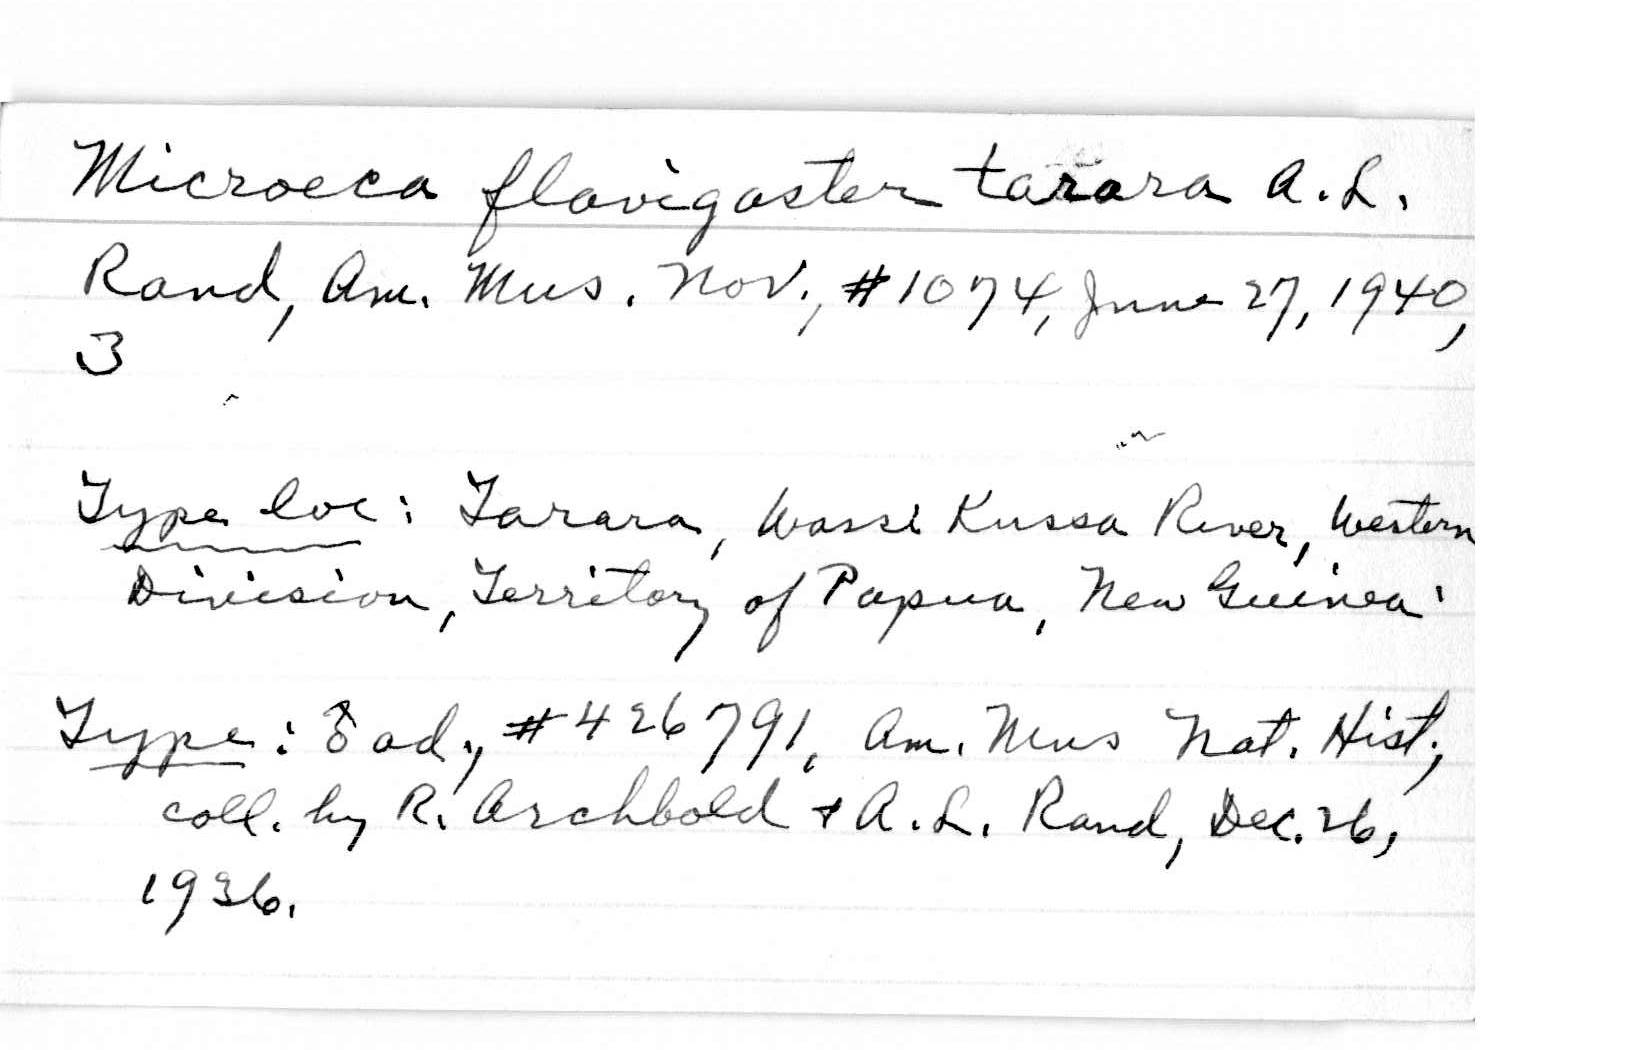 Microeca flavigaster tarara A.L.
Rand, Am. Mus. Nov., #1074, June 27, 1940,
3
Type loc: Tarara, Wassi Kussa River, Western
Division, Territory of Papua, New Guinea.
Type: ♂ ad., #426791, Am. Mus Nat. Hist.,
coll. by R. Archbold + A.L. Rand, Dec. 26,
1936.